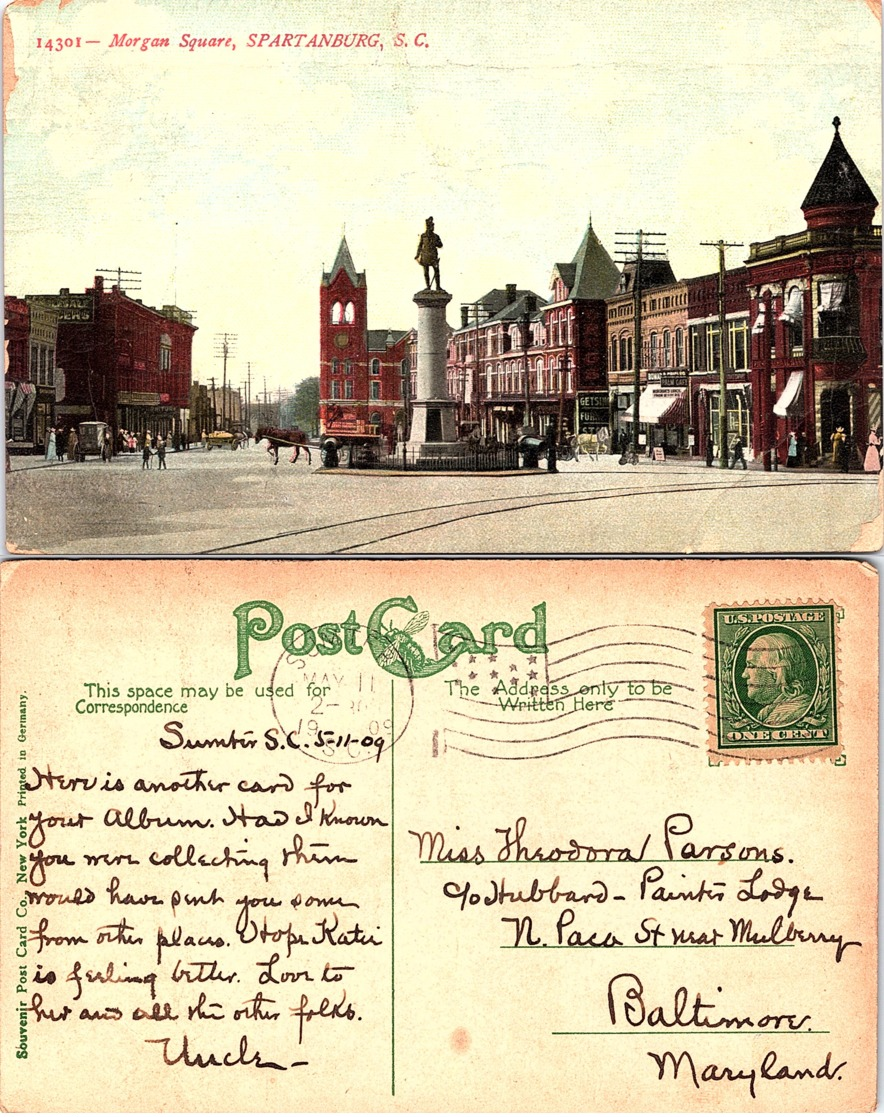 14301 — Morgan Square, SPARTANBURG, S. C.
PALM CAFE
GETSIN
FURN
Post Card
This space may be used for
Correspondence
The Address only to be
Written Here
MAY 11
2-30
1909
S.C.
U.S. POSTAGE
ONE CENT
Sumter S.C. 5-11-09
Here is another card for
your Album. Had I known
you were collecting them
would have sent you some
from other places. Hope Katie
is feeling better. Love to
her and all the other folks.
Uncle —
Miss Theodora Parsons.
c/o Hubbard - Painter Lodge
N. Paca St near Mulberry
Baltimore.
Maryland.
Souvenir Post Card Co., New York Printed in Germany.